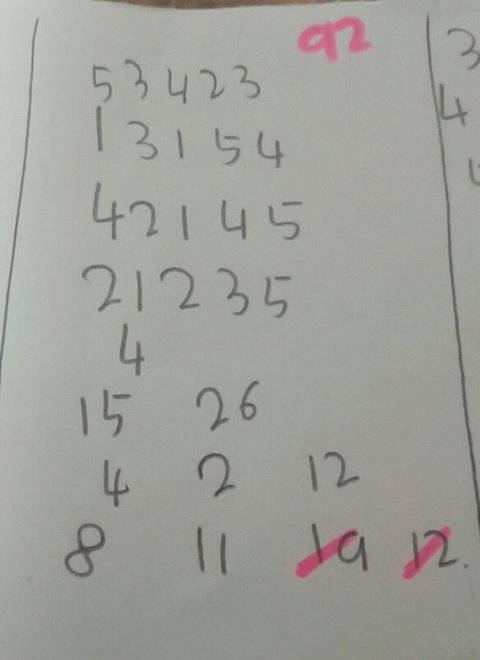 92
53423
13154
42145
21235
4
15 26
4 2 12
8 11 19 12.
3
4